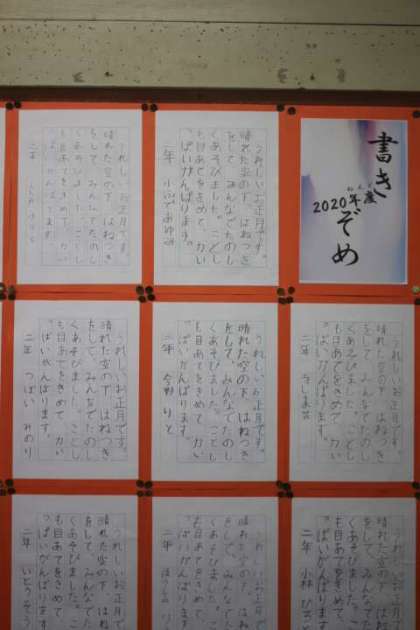 書き
ぞめ
2020年度
ねんど
うれしいお正月です。
晴れた空の下、はねつき
をして、みんなでたのし
くあそびました。ことし
も目あてをきめて、力い
っぱいがんばります。
二年
うれしいお正月です。
晴れた空の下、はねつき
をして、みんなでたのし
くあそびました。ことし
も目あてをきめて、力い
っぱいがんばります。
二年
うれしいお正月です。
晴れた空の下、はねつき
をして、みんなでたのし
くあそびました。ことし
も目あてをきめて、力い
っぱいがんばります。
二年
うれしいお正月です。
晴れた空の下、はねつき
をして、みんなでたのし
くあそびました。ことし
も目あてをきめて、力い
っぱいがんばります。
二年 今野 りと
うれしいお正月です。
晴れた空の下、はねつき
をして、みんなでたのし
くあそびました。ことし
も目あてをきめて、力い
っぱいがんばります。
二年 つぼい みのり
うれしいお正月で
晴れた空の下、はね
をして、みんなでた
くあそびました。こ
も目あてをきめて、
っぱいがんばります
二年 小林
うれしいお正月で
晴れた空の下、はね
をして、みんなでた
くあそびました。こ
も目あてをきめて、
っぱいがんばります
二年
うれしいお正月で
晴れた空の下、はね
をして、みんなでた
くあそびました。こ
も目あてをきめて、
っぱいがんばります
二年 いとうそう